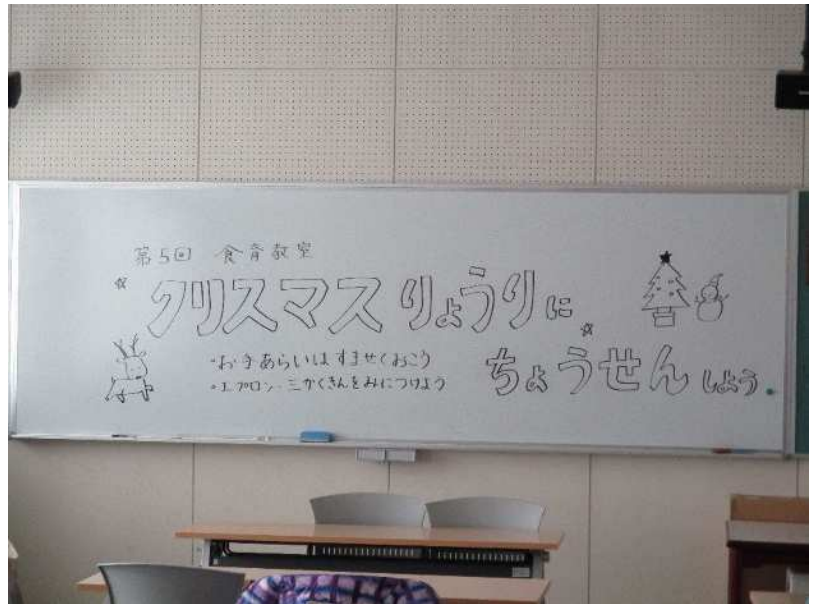 第5回 食育教室
クリスマスりょうりに
ちょうせんしよう
・お手あらいはすませておこう
・エプロン・三かくきんをみにつけよう